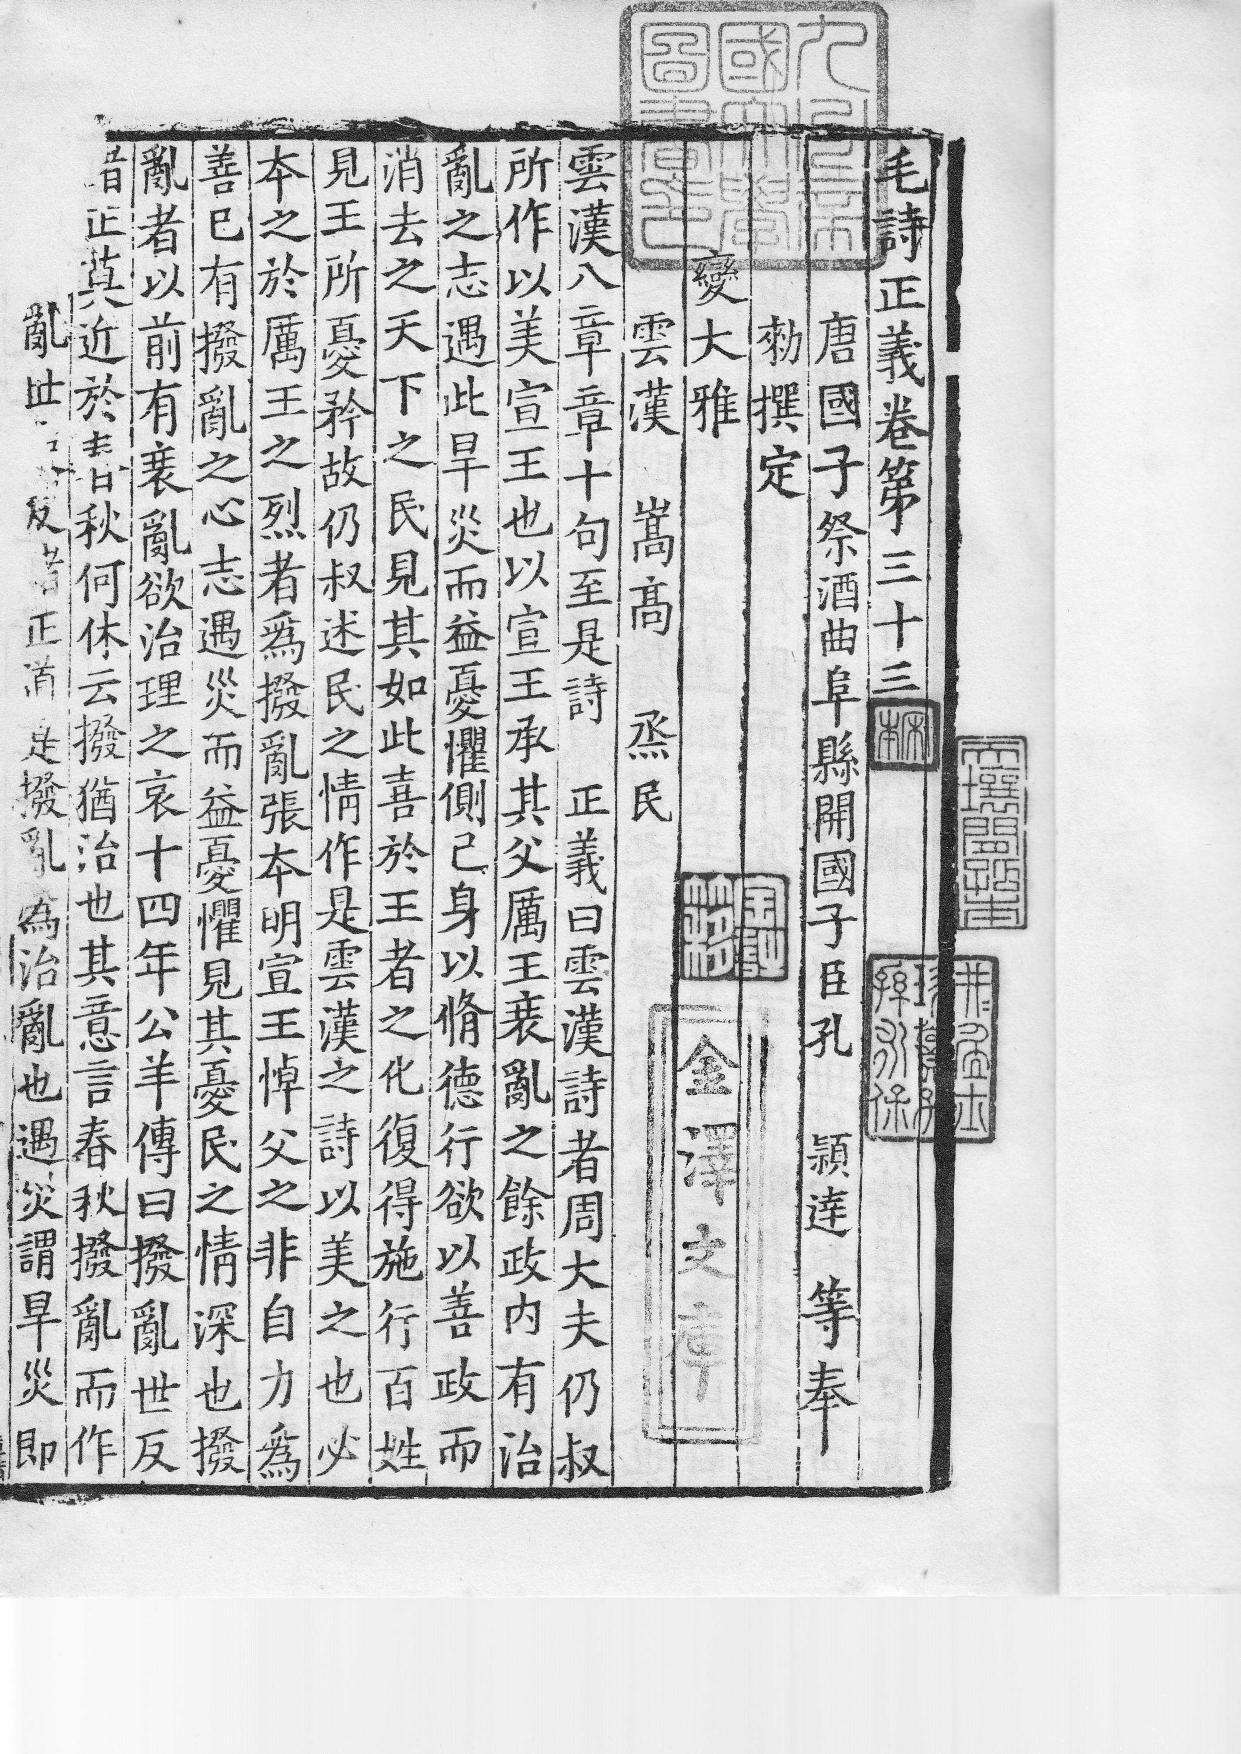 毛詩正義卷第三十三
唐國子祭酒曲阜縣開國子臣孔 穎達 等奉
勑撰定
變大雅
雲漢 嵩高 烝民
雲漢八章章十句至是詩 正義曰雲漢詩者周大夫仍叔
所作以美宣王也以宣王承其父厲王衰亂之餘政内有治
亂之志遇此旱災而益憂懼側己身以脩德行欲以善政而
消去之天下之民見其如此喜於王者之化復得施行百姓
見王所憂矜故仍叔述民之情作是雲漢之詩以美之也必
本之於厲王之烈者爲撥亂張本明宣王悼父之非自力爲
善已有撥亂之心志遇災而益憂懼見其憂民之情深也撥
亂者以前有衰亂欲治理之哀十四年公羊傳曰撥亂世反
諸正莫近於春秋何休云撥猶治也其意言春秋撥亂而作
亂世反諸正道是撥亂為治亂也遇災謂旱災即
金澤文庫